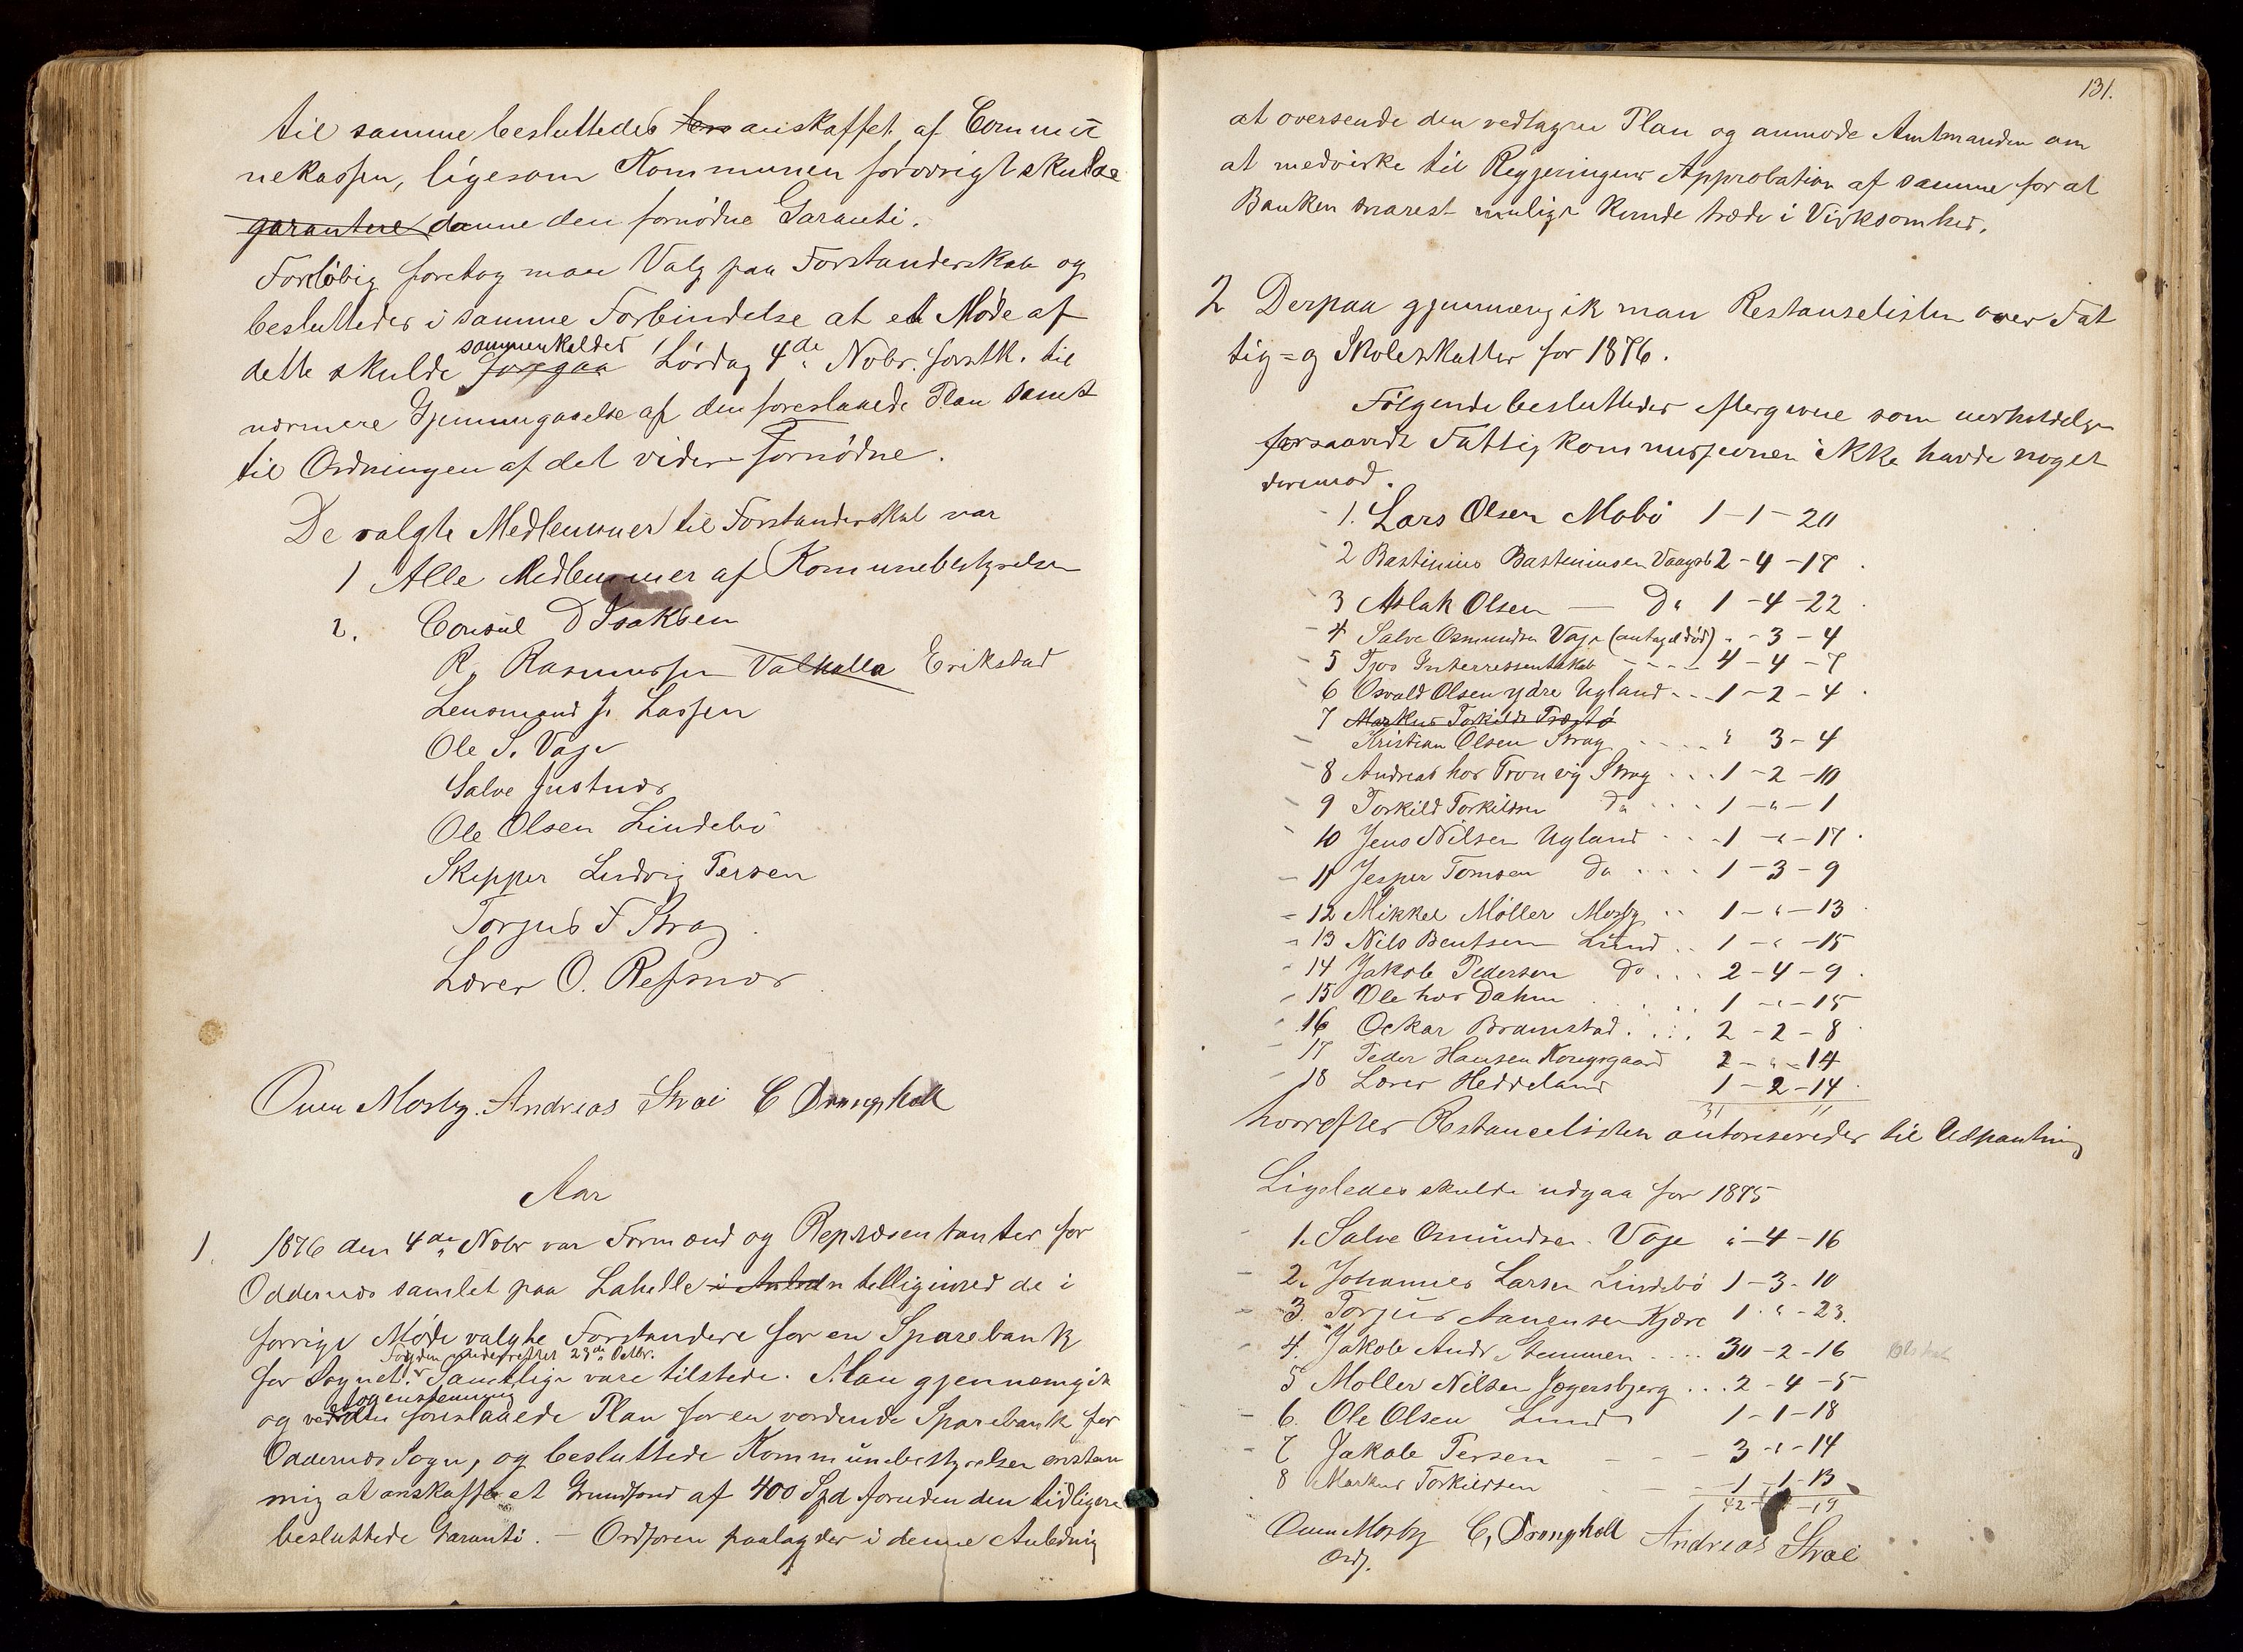 til samme besluttedes anskaffet af Commu
nekassen, ligesom Kommunen forøvrigt skulde
garantere danne den fornødne Garanti.
Foreløbig foretog man Valg paa Forstanderskab og
besluttedes i samme Forbindelse at et Møde af
sammenkaldes
dette skulde foregaa Lørdag 4de Nobr. førstk. til
nærmere Gjennemgaaelse af den foreslaaede Plan samt
til Ordningen af det videre Fornødne.
De valgte Medlemmer til Forstanderskab var
1 Alle Medlemmer af Komunebestyrelsen
2. Consul D Isaksen
R. Rasmussen Valhalla Erikstad
Lensmand J. Lassen
Ole S. Vaje
Salve Justnæs
Ole Olsen Lindebø
Skipper Ludvig Tersen
Torjus F Strag
Lærer O. Refsnæs
Ouen Mosby. Andreas Strai C Drangsholt
Aar
1. 1876 den 4de Nobr var Formænd og Repræsentanter for
Oddernes samlet paa Lahelle tilligemed de i
forrige Møde valgte Forstandere for en Sparebank
Fogden underrettet 23de Octbr.
for Sognet. Samtlige vare tilstede. Man gjennemgik
og vedtog enstemmig
den foreslaaede Plan for en vordende Sparebank for
Oddernes Sogn, og besluttede Kommunebestyrelsen enstem
mig at anskaffe et Grundfond af 400 Spd foruden den tidligere
besluttede Garanti. — Ordføren paalagdes i denne Anledning
131.
at oversende den vedtagne Plan og anmode Amtmanden om
at medvirke til Regjeringens Approbation af samme for at
Banken snarest muligt kunde træde i Virksomhed.
2 Derpaa gjennemgik man Restanselisten over Fat
tig= og Skoleskatter for 1876.
Følgende besluttedes eftergivne som uerholdelige
forsaavidt Fattigkommisjonen ikke havde noget
derimod.
1. Lars Olsen Mobø 1-1-20
2 Bastinius Basteniusen Vaagsb 2-4-17
3 Aslak Olsen — Do 1-4-22
4 Salve Osmundsen Vaje (antagl død) " - 3 - 4
5 Tjos Interressentskab - - - - 4-4-7
6 Osvald Olsen ydre Ugland - - 1-2-4
7 Markus Torkilds Træstø
Kristian Olsen Strag - - - - " 3-4
8 Andreas hos Tronvig Strag . . . 1-2-10
9 Torkild Torkildsen Do . . . 1-"-1
10 Jens Nilsen Ugland . . . 1-"-17
11 Jesper Tomsen Do . . . 1-3-9
12 Mikkel Møller Mosby . . 1-"-13
13 Nils Bentsen Lund . . 1-"-15
14 Jakob Pedersen Do . . . 2-4-9
15 Ole hos Dahm . . . . 1-"-15
16 Oskar Bramstad . . . . 2-2-8
17 Peder Hansen Kongsgaard 2-"-14
18 Lærer Heddeland 1-2-14
31 11
hvorefter Restancelisten autoriseredes til Udpantning
Ligeledes skulde udgaa for 1875
1. Salve Osmundsen Vaje "-4-16
2. Johannes Larsen Lindebø 1-3-10
3. Torjus Aanensen Kjære 1-"-23.
4. Jakob Andr Stemmen . . . . 30-2-16
5 Møller Nilsen Jegersbjerg . . . 2-4-5
6. Ole Olsen Lund 1-1-18
7 Jakob Tersen - - - 3-"-14
8 Markus Torkildsen - - - 1-1-13
42 - -19
Ouen Mosby C. Drangsholt Andreas Strai
Ordf.